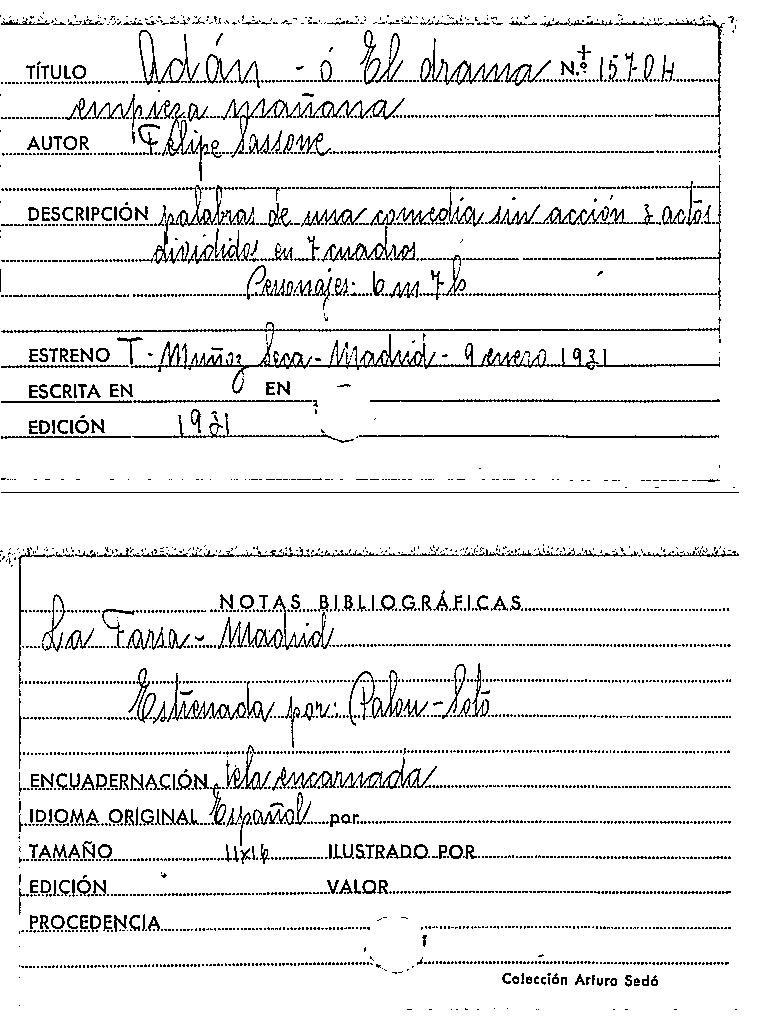 TÍTULO Adán - ó El drama N.º 15704
empieza mañana
AUTOR Felipe Sassone
DESCRIPCIÓN palabras de una comedia sin acción 3 actos
divididos en 7 cuadros
Personajes: 6 m 7 h
ESTRENO T. Muñoz Seca - Madrid - 9 enero 1931
ESCRITA EN EN -
EDICIÓN 1931
NOTAS BIBLIOGRÁFICAS
La Farsa - Madrid
Estrenada por: Palou - Soto
ENCUADERNACIÓN tela encarnada
IDIOMA ORIGINAL Español por
TAMAÑO 11x16 ILUSTRADO POR
EDICIÓN VALOR
PROCEDENCIA
Colección Arturo Sedó